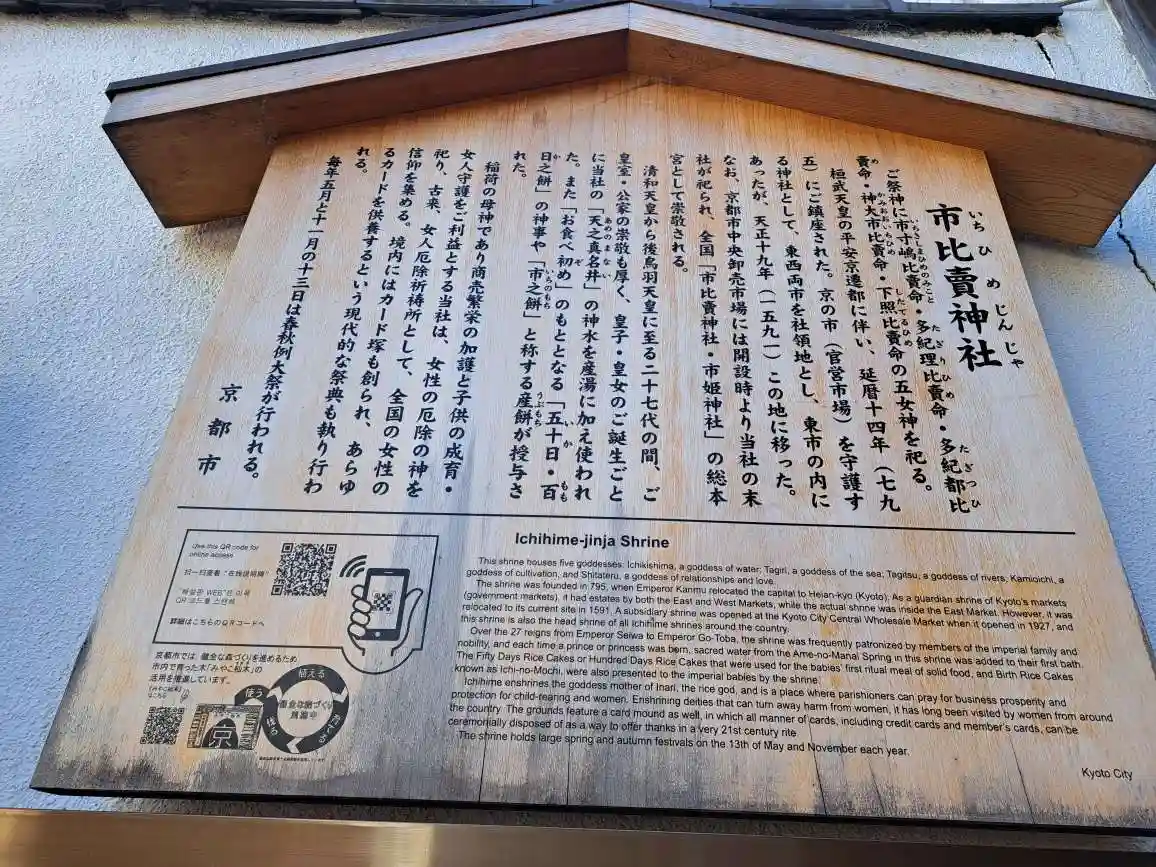 市比賣神社
いちひめじんじゃ
ご祭神に市寸嶋比賣命・多紀理比賣命・多紀都比
賣命・神大市比賣命・下照比賣命の五女神を祀る。
桓武天皇の平安京遷都に伴い、延暦十四年(七九
五)にご鎮座された。京の市(官営市場)を守護す
る神社として、東西両市を社領地とし、東市の内に
あったが、天正十九年(一五九一)この地に移った。
なお、京都市中央卸売市場には開設時より当社の末
社が祀られ、全国「市比賣神社・市姫神社」の総本
宮として崇敬される。
清和天皇から後鳥羽天皇に至る二十七代の間、ご
皇室・公家の崇敬も厚く、皇子・皇女のご誕生ごと
に当社の「天之真名井」の神水を産湯に加え使われ
た。また「お食べ初め」のもととなる「五十日・百
日之餅」の神事や「市之餅」と称する産餅が授与さ
れた。
稲荷の母神であり商売繁栄の加護と子供の成育・
女人守護をご利益とする当社は、女性の厄除の神を
祀り、古来、女人厄除祈祷所として、全国の女性の
信仰を集める。境内にはカード塚も創られ、あらゆ
るカードを供養するという現代的な祭典も執り行わ
れる。
毎年五月と十一月の十三日は春秋例大祭が行われる。
京都市
Ichihime-jinja Shrine
This shrine houses five goddesses: Ichikishima, a goddess of water; Tagiri, a goddess of the sea; Tagitsu, a goddess of rivers; Kamioichi, a
goddess of cultivation, and Shitateru, a goddess of relationships and love.
The shrine was founded in 795, when Emperor Kanmu relocated the capital to Heian-kyo (Kyoto). As a guardian shrine of Kyoto's markets
(government markets), it had estates by both the East and West Markets, while the actual shrine was inside the East Market. However, it was
relocated to its current site in 1591. A subsidiary shrine was opened at the Kyoto City Central Wholesale Market when it opened in 1927, and
this shrine is also the head shrine of all Ichihime shrines around the country.
Over the 27 reigns from Emperor Seiwa to Emperor Go-Toba, the shrine was frequently patronized by members of the imperial family and
nobility, and each time a prince or princess was born, sacred water from the Ame-no-Manai Spring in this shrine was added to their first bath.
The Fifty Days Rice Cakes or Hundred Days Rice Cakes that were used for the babies' first ritual meal of solid food, and Birth Rice Cakes
known as Ichi-no-Mochi, were also presented to the imperial babies by the shrine.
Ichihime enshrines the goddess mother of Inari, the rice god, and is a place where parishioners can pray for business prosperity and
protection for child-rearing and women. Enshrining deities that can turn away harm from women, it has long been visited by women from around
the country. The grounds feature a card mound as well, in which all manner of cards, including credit cards and member's cards, can be
ceremonially disposed of as a way to offer thanks in a very 21st century rite.
The shrine holds large spring and autumn festivals on the 13th of May and November each year.
Kyoto City
Use this QR code for
online access
扫一扫查看"在线说明牌"
QR 코드를 스캔해
詳細はこちらのQRコードへ
京都市では、健全な森づくりを進めるため
市内で育った木「みやこ杣木」の
活用を推進しています。
使う
植える
京